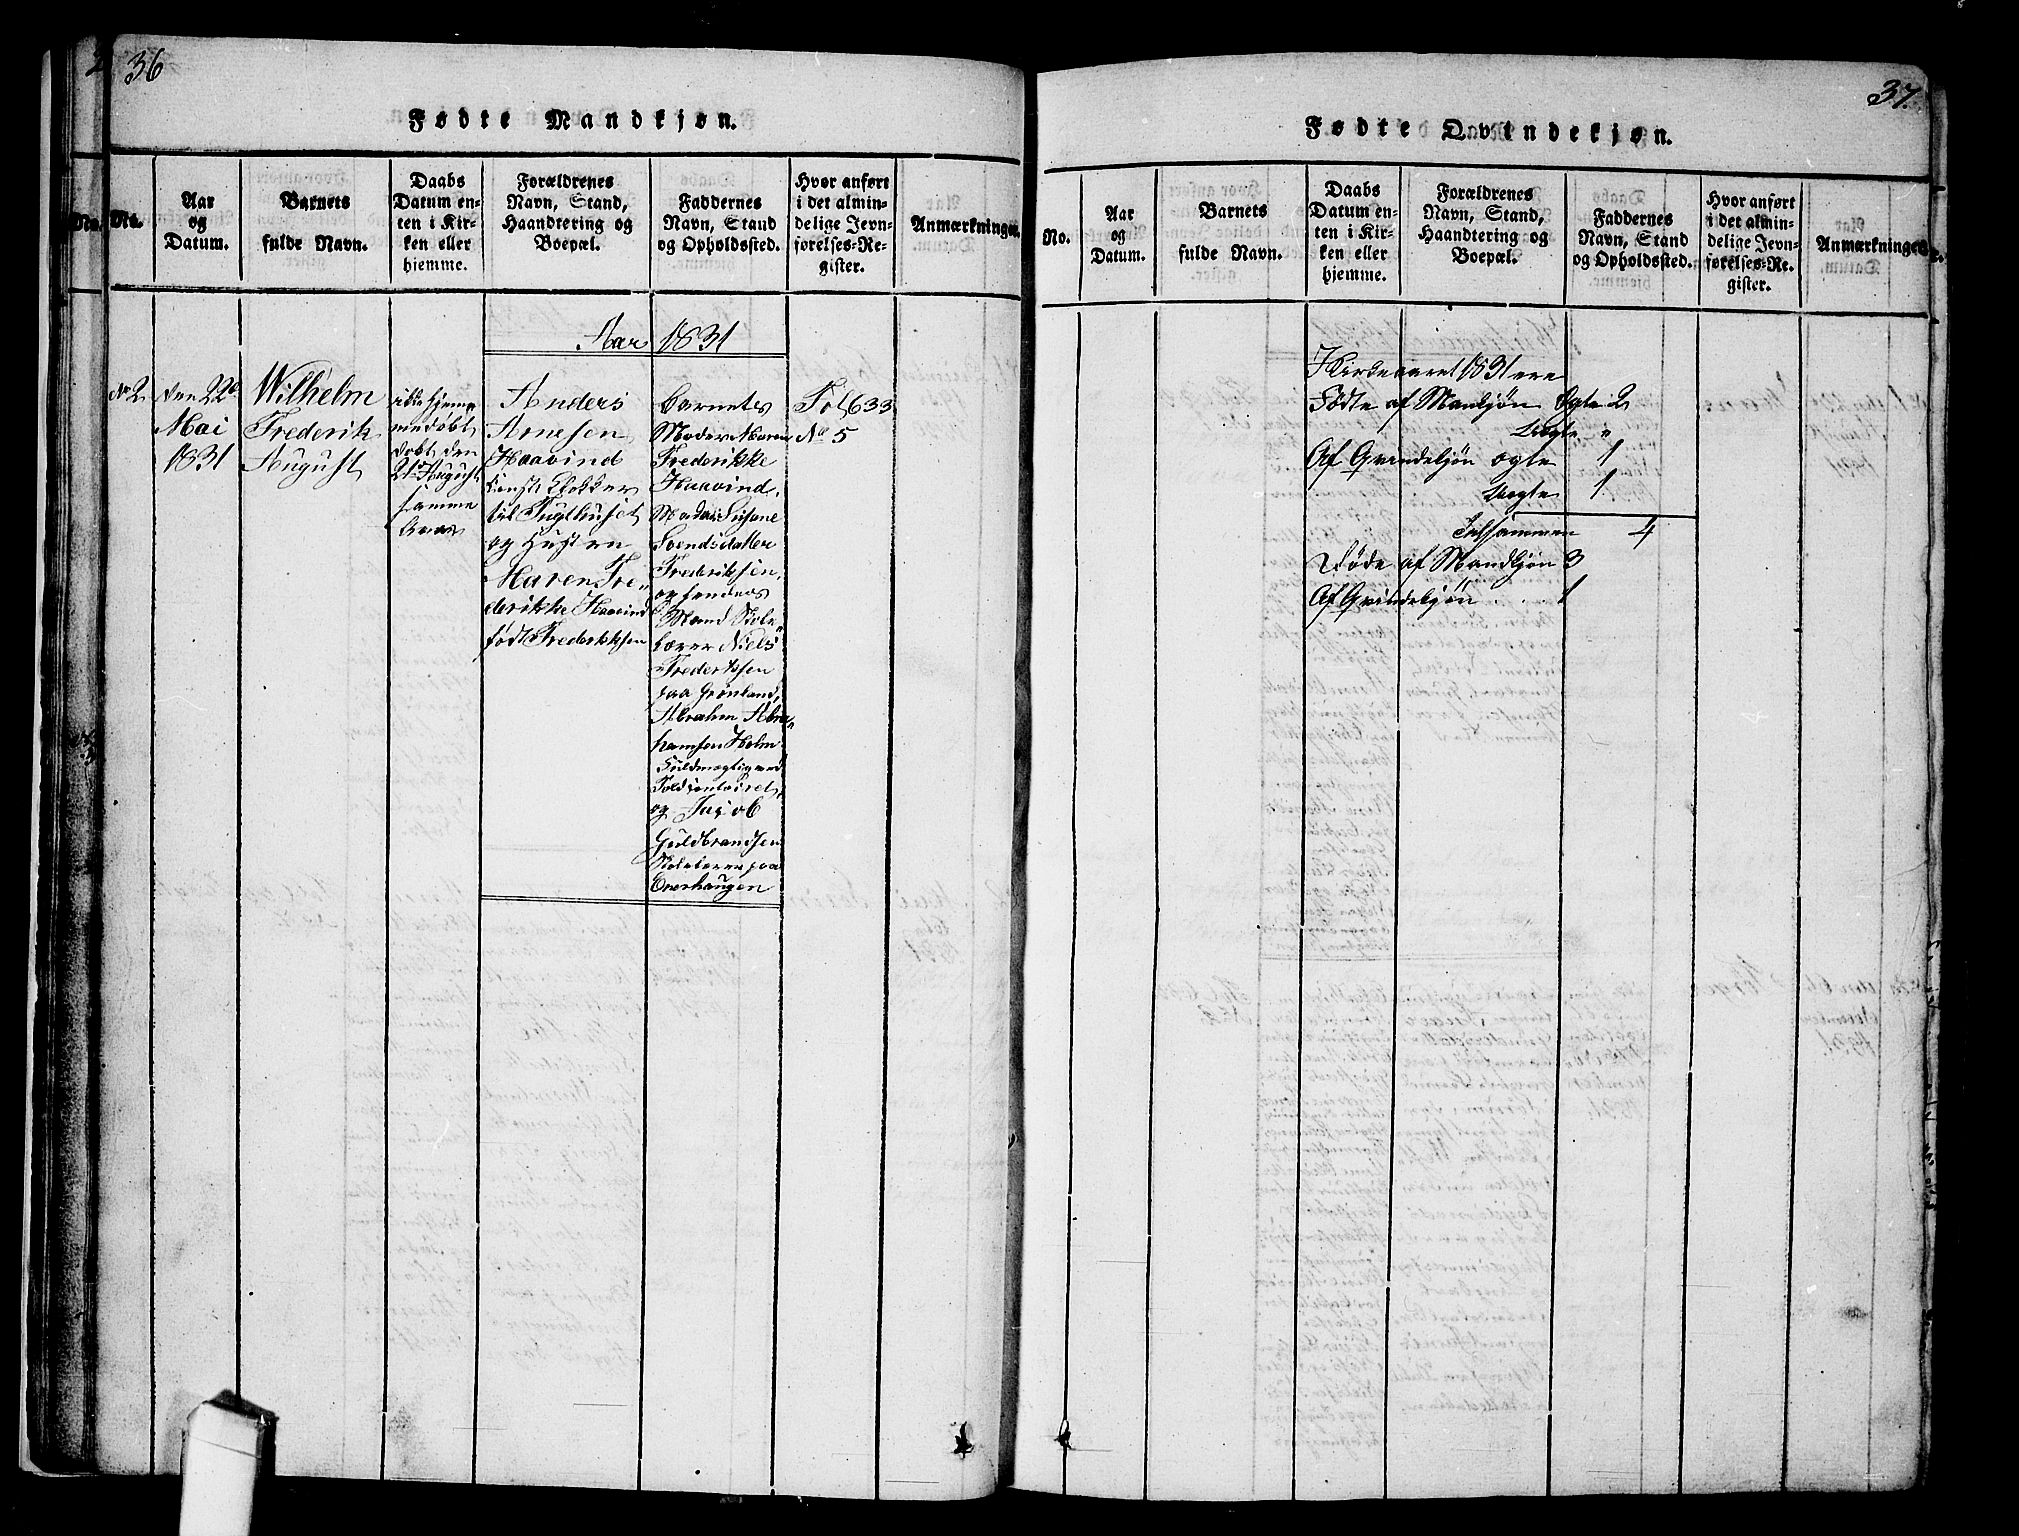 36
Fødte Mandkjøn.
No.
Aar
og
Datum.
Barnets
fulde Navn.
Daabs
Datum en-
ten i Kir-
ken eller
hjemme.
Forældrenes
Navn, Stand,
Haandtering og
Boepæl.
Faddernes
Navn, Stand
og Opholdssted.
Hvor anført
i det almin-
delige Jevn-
førelses-Re-
gister.
Anmærkninger.
Aar 1831
No 2
den 22de
Mai
1831
Wilhelm
Frederik
August
ikke hjemme-
døbt
døbt den
21de August
samme
Aar
Anders
Arnesen
Haavind
Klokker
til Tugthuset
og Hustru
Maren Fre-
derikke Haavind
født Frederikksen
Barnets
Moder Maren
Frederikke
Haavind,
Madam Susane
Svendsdatter
Frederiksen,
og hendes
Mand Skole-
lærer Niels
Frederiksen
paa Grønland,
Abrahm Abra-
hamsen Holm
Fuldmægtig ved
Toldcontoiret,
og Jacob
Guldbrandsen
Skolelærer paa
Enerhaugen
Fol 633
No 5
37.
Fødte Qvindekjøn.
No.
Aar
og
Datum.
Barnets
fulde Navn.
Daabs
Datum en-
ten i Kir-
ken eller
hjemme.
Forældrenes
Navn, Stand,
Haandtering og
Boepæl.
Faddernes
Navn, Stand
og Opholdssted.
Hvor anført
i det almin-
delige Jevn-
førelses-Re-
gister.
Anmærkninger.
I Kirkeaaret 1831 ere
Fødte af Mankjøn Ægte 2
Uægte "
Af Qvindekjøn ægte 1
Uægte 1
Tilsammen 4
Døde af Mandkjøn 3
Af Qvindekjøn . . . 1